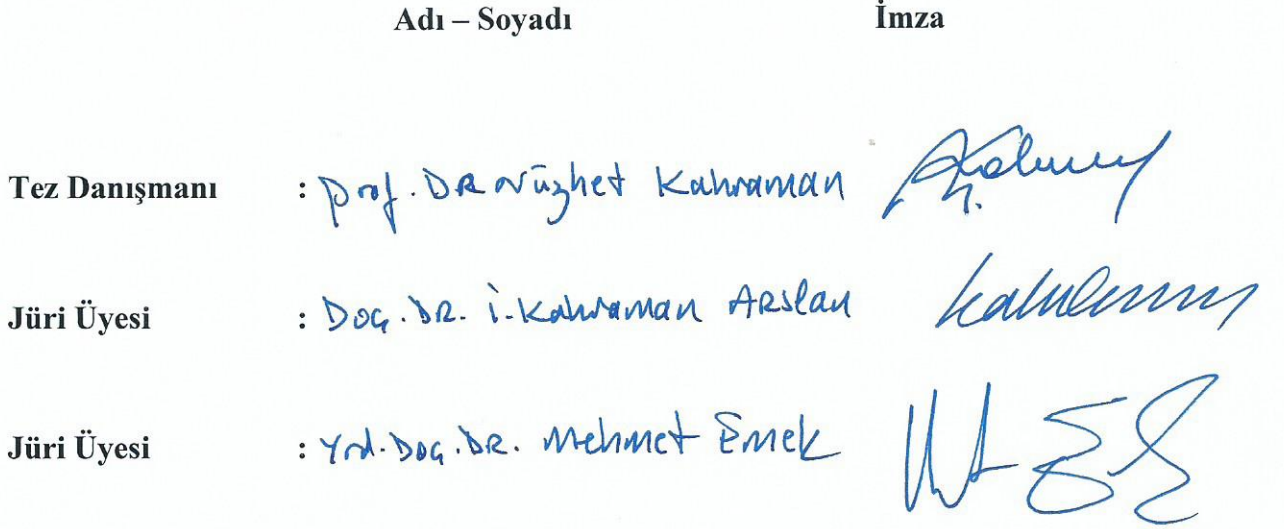 Adı – Soyadı İmza
Tez Danışmanı : Prof. DR Nüzhet Kahraman
Jüri Üyesi : Doç. DR. İ. Kahraman ARslan
Jüri Üyesi : Yrd. Doç. DR. Mehmet Emek